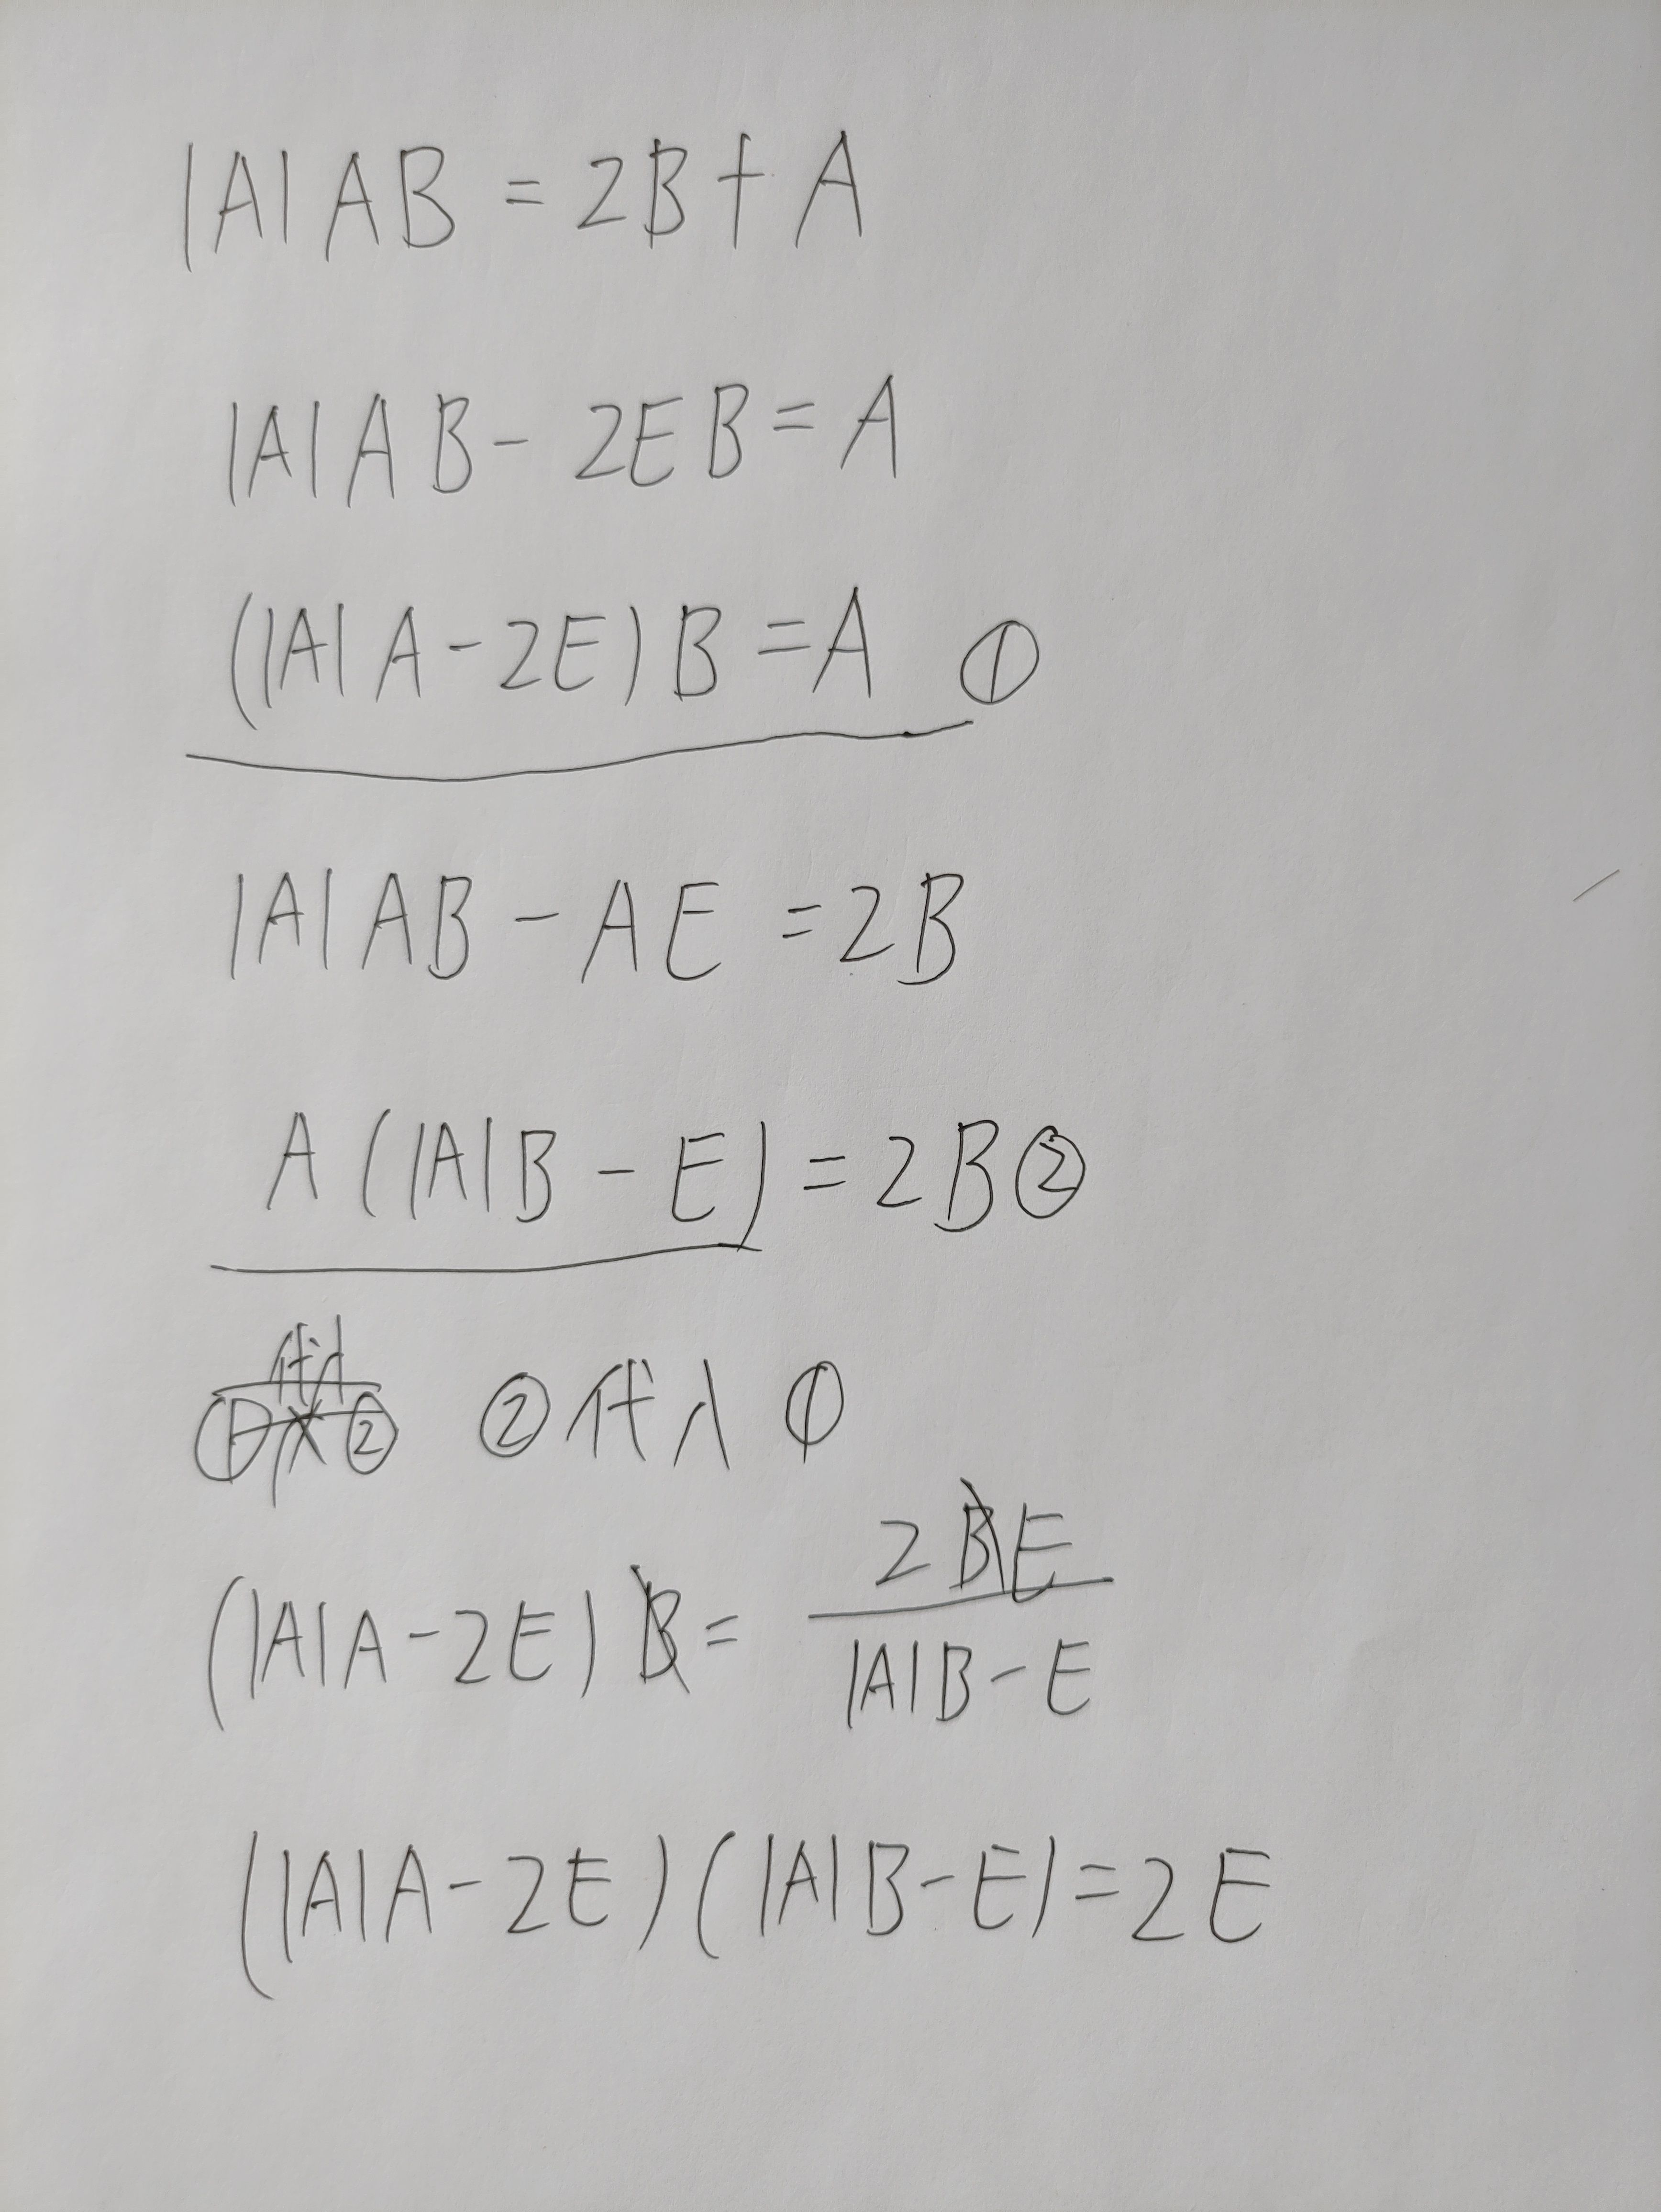 |A|AB = 2B + A
|A|AB - 2EB = A
(|A|A - 2E)B = A ①
|A|AB - AE = 2B
A(|A|B - E) = 2B ②
②代入①
(|A|A - 2E)B = 2BE / |A|B - E
(|A|A - 2E)(|A|B - E) = 2E